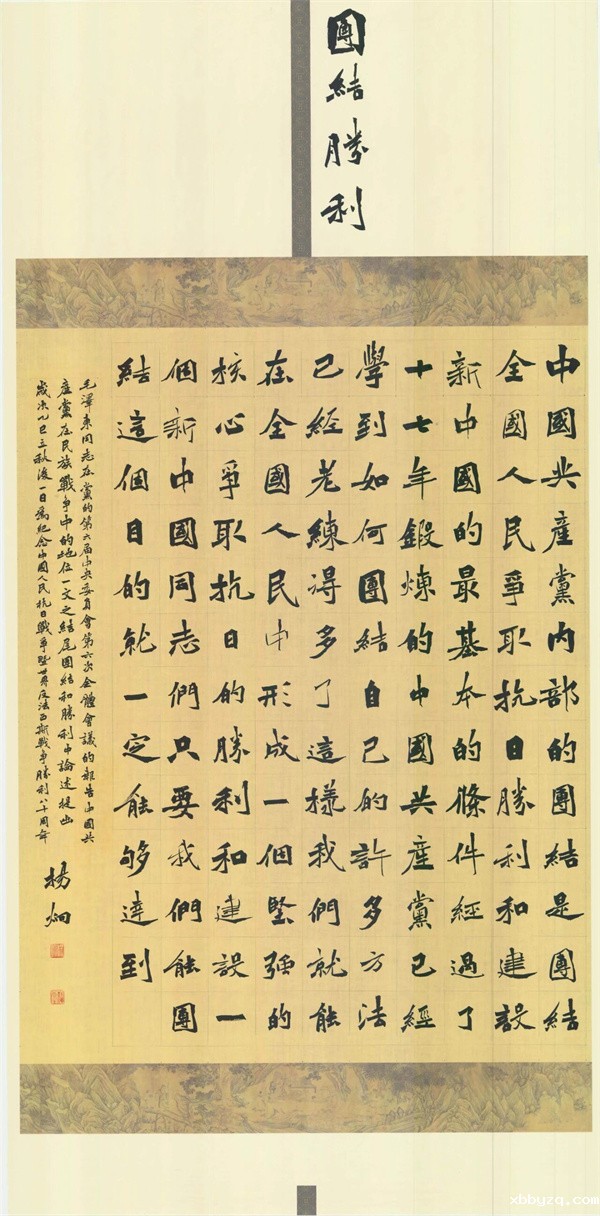 團結勝利
中國共產黨內部的團結是團結
全國人民爭取抗日勝利和建設
新中國的最基本的條件經過了
十七年鍛煉的中國共產黨已經
學到如何團結自己的許多方法
已經老練得多了這樣我們就能
在全國人民中形成一個堅強的
核心爭取抗日的勝利和建設一
個新中國同志們只要我們能團
結這個目的就一定能够達到
毛澤東同志在黨的第六屆中央委員會第六次全體會議的報告中國共
產黨在民族戰爭中的地位一文之結尾團結和勝利中論述提出
歲次乙巳立秋後一日為紀念中國人民抗日戰爭暨世界反法西斯戰爭勝利八十周年
楊炯
xbbyzq.com